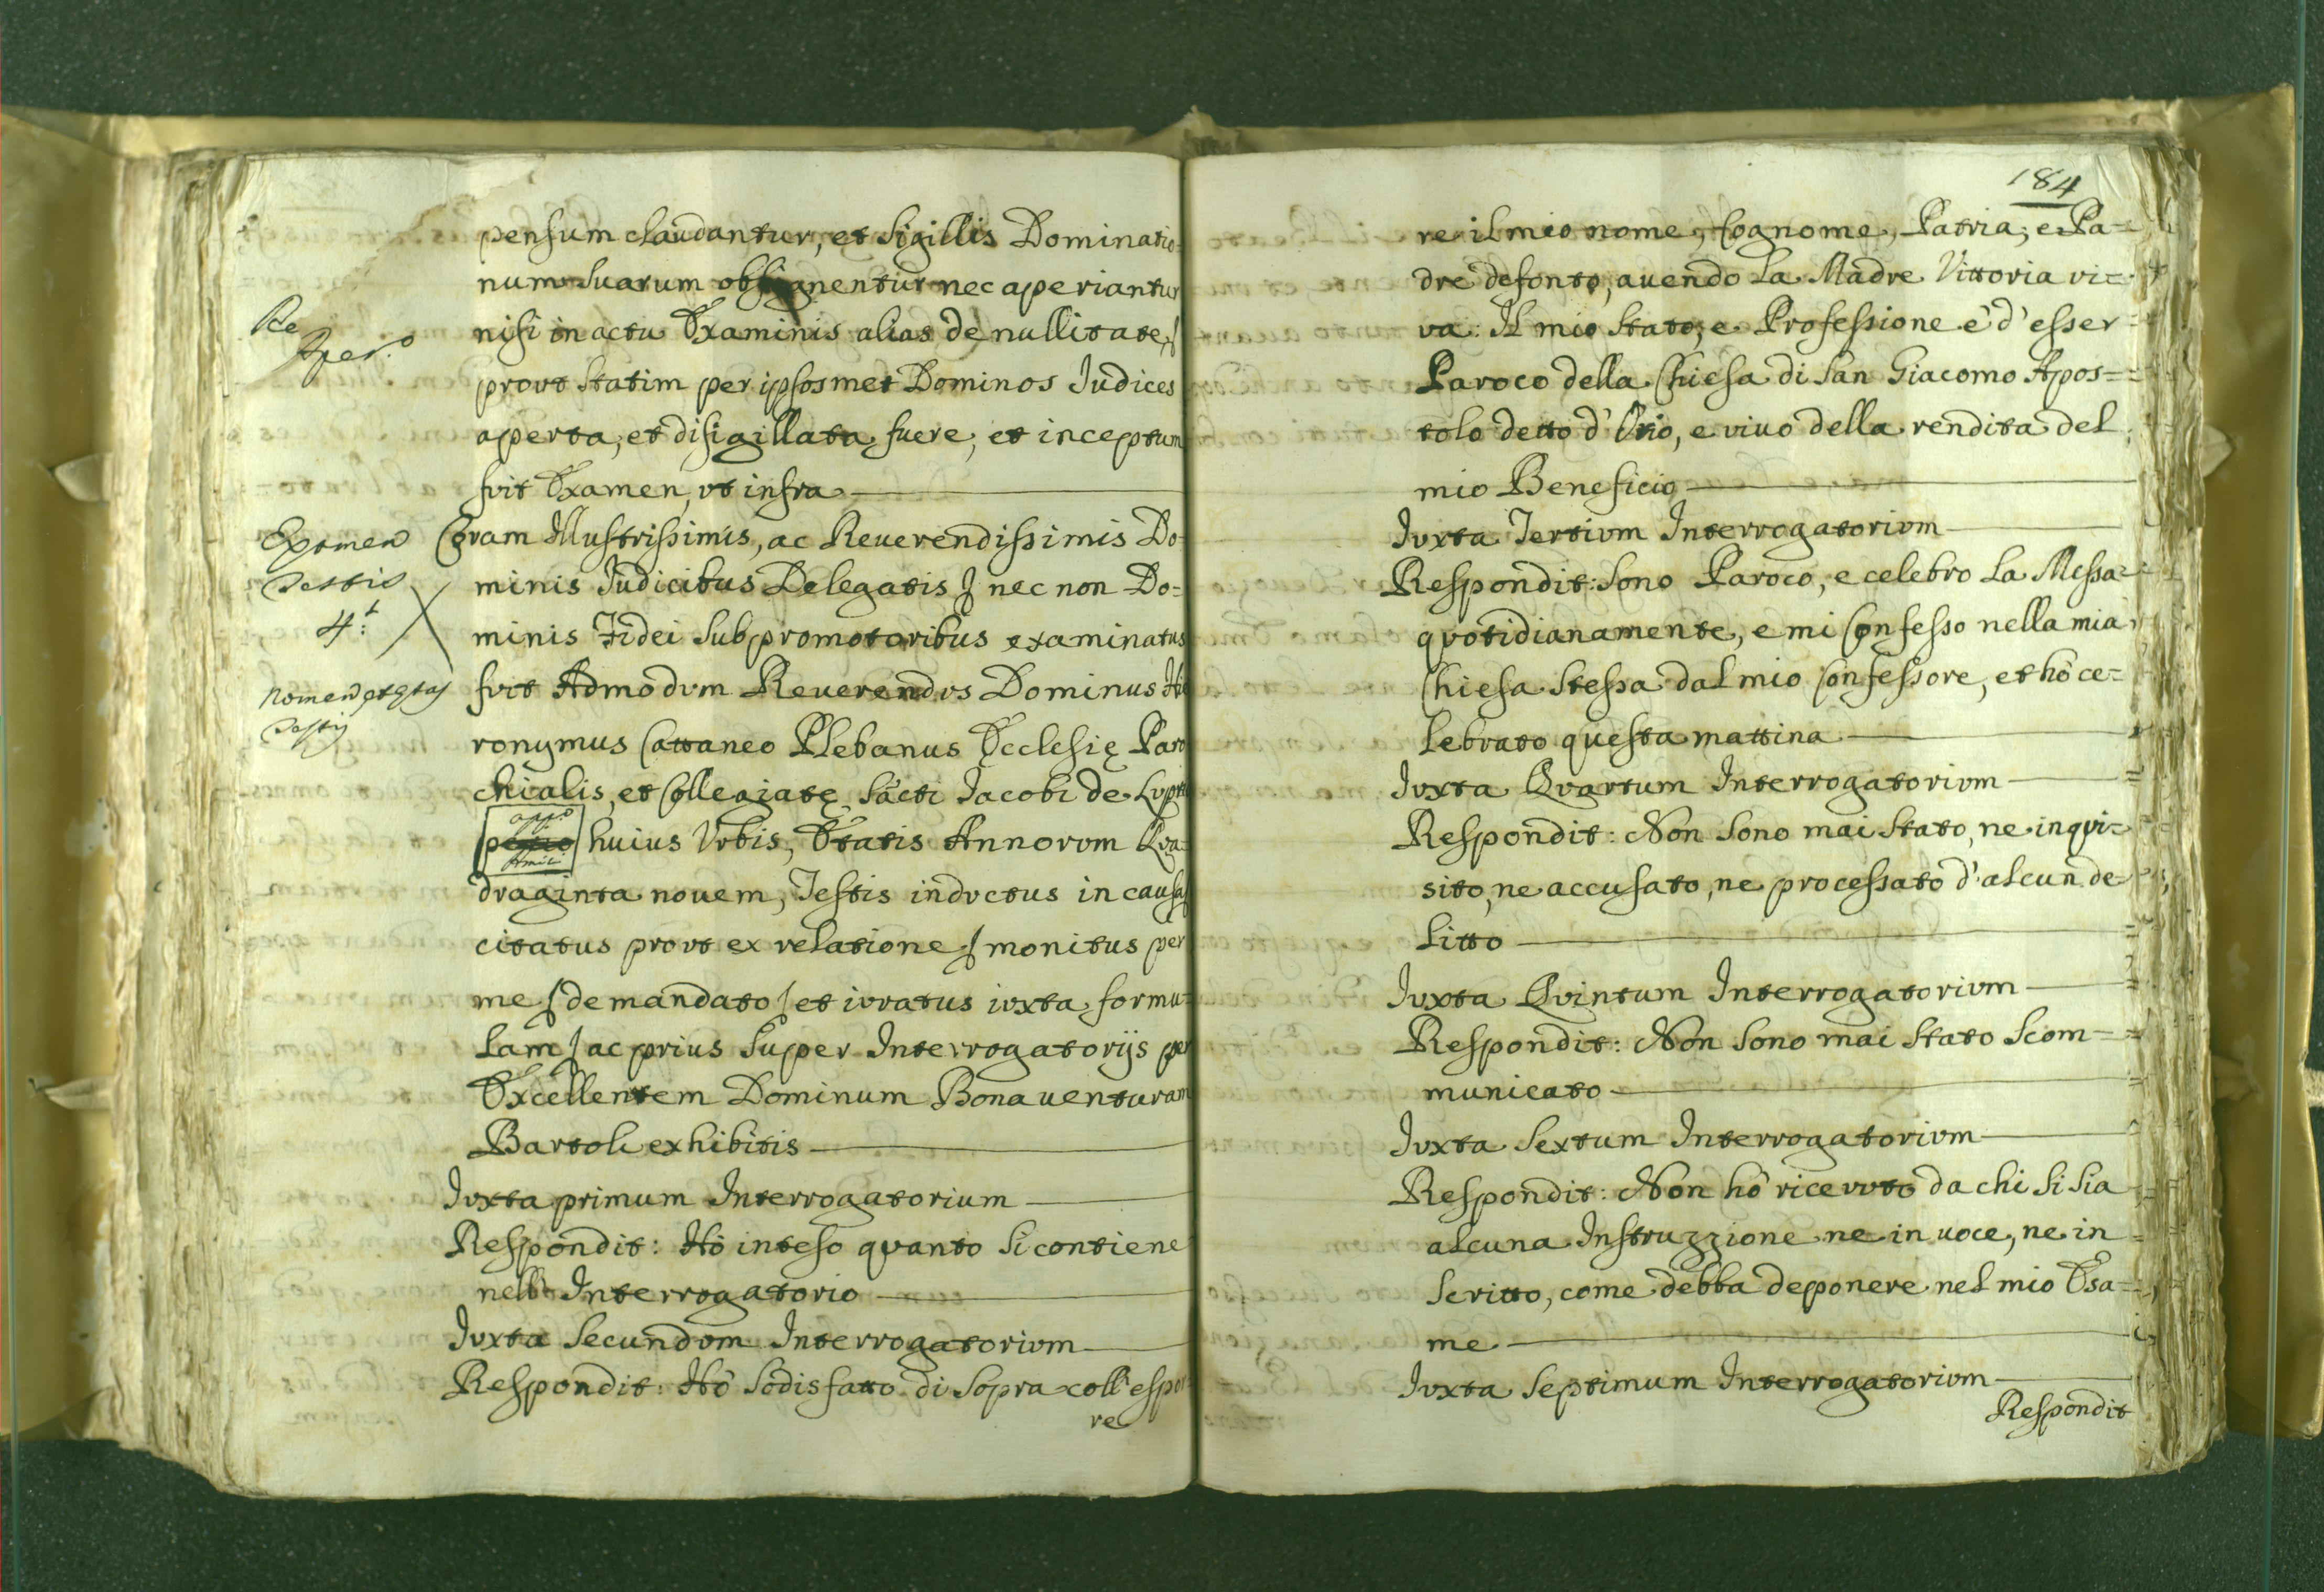 pensum claudantur, et Sigillis Dominatio-
num suarum obsignentur nec aperiantur
nisi in actu Examinis alias de nullitate
prout statim per ipsosmet Dominos Iudices
aperta, et disigillata fuere, et inceptum
fuit Examen, vt infra
Re
Aper.º
Coram Illustrissimis, ac Reuerendissimis Do-
minis Iudicibus Delegatis nec non Do=
minis Fidei Subpromotoribus examinatus
fuit Admodum Reuerendus Dominus Hie
ronymus Cattaneo Plebanus Ecclesię Paro
chialis, et Collegiatę Sācti Iacobi de
huius Vrbis, Ętatis Annorum Qua-
draginta nouem, Testis inductus in causa
citatus prout ex relatione monitus per
me de mandato et iuratus iuxta formu=
lam ac prius super Interrogatorijs per
Excellentem Dominum Bonauenturam
Bartoli exhibitis
Examen
Testis
4.t
Nomen et
Testis
Iuxta primum Interrogatorium
Respondit: Hò inteso quanto si contiene
nell'Interrogatorio
Iuxta Secundum Interrogatorium
Respondit: Hò Sodisfatto di Sopra coll'espor
re
184
re il mio nome, Cognome, Patria, e Pa=
dre defonto, auendo la Madre Vittoria vi=
va: Il mio Stato, e Professione è d'esser
Paroco della Chiesa di San Giacomo Apos=
tolo detto d'Orio, e viuo della rendita del
mio Beneficio
Iuxta Tertium Interrogatorium
Respondit: Sono Paroco, e celebro la Messa
quotidianamente, e mi Confesso nella mia
Chiesa Stessa dal mio Confessore, et hò ce=
lebrato questa mattina
Iuxta Quartum Interrogatorium
Respondit: Non Sono mai Stato, ne inqui=
sito, ne accusato, ne processato d'alcun de
litto
Iuxta Quintum Interrogatorium
Respondit: Non Sono mai Stato Scom=
municato
Iuxta Sextum Interrogatorium
Respondit: Non hò riceuuto da chi si sia
alcuna Instruzzione ne in uoce, ne in
Scritto, come debba deponere nel mio Esa=
me
Iuxta Septimum Interrogatorium
Respondit